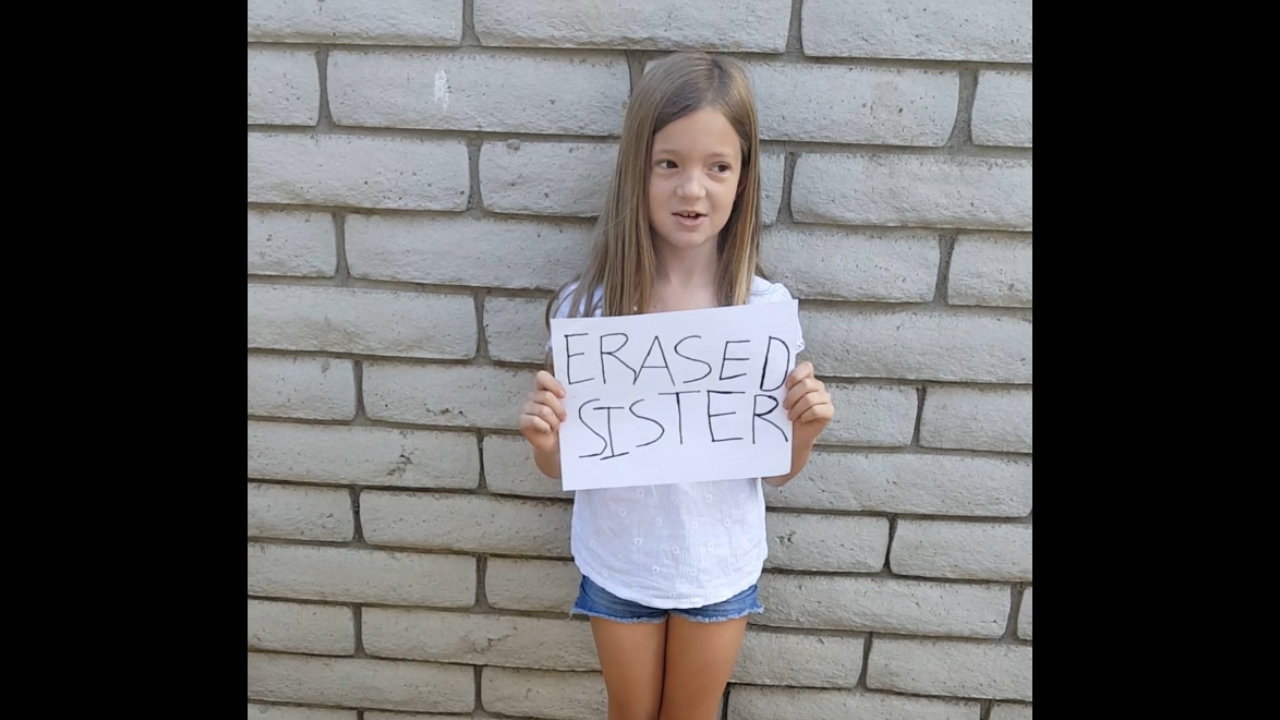 ERASED
SISTER